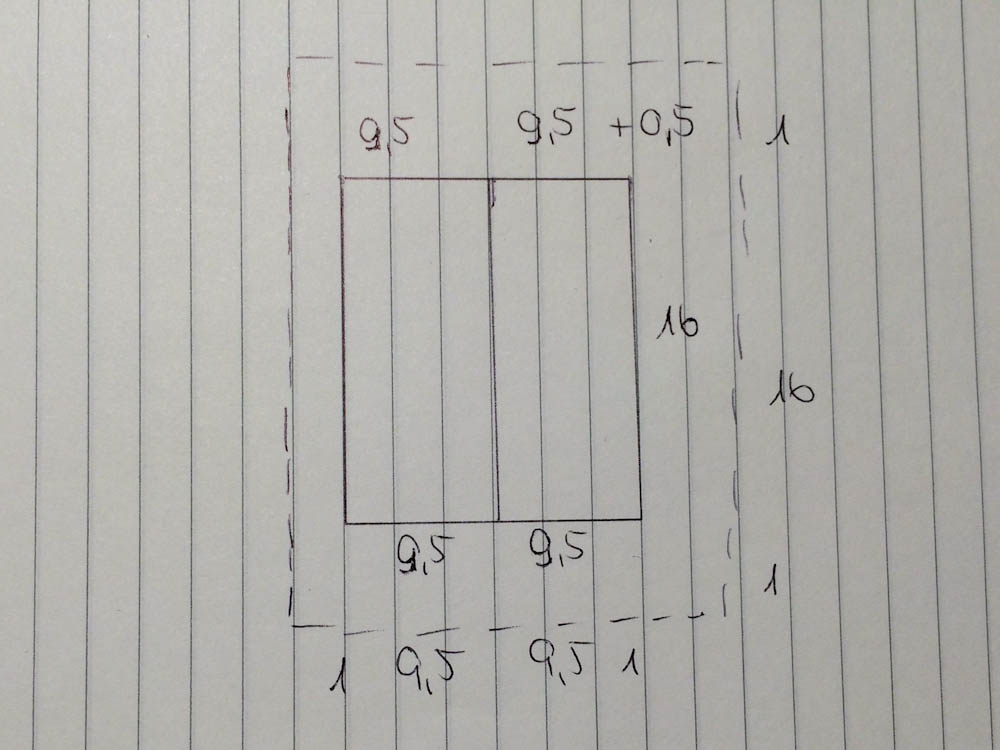 9,5 9,5 +0,5 1
16
16
9,5 9,5
1
1 9,5 9,5 1